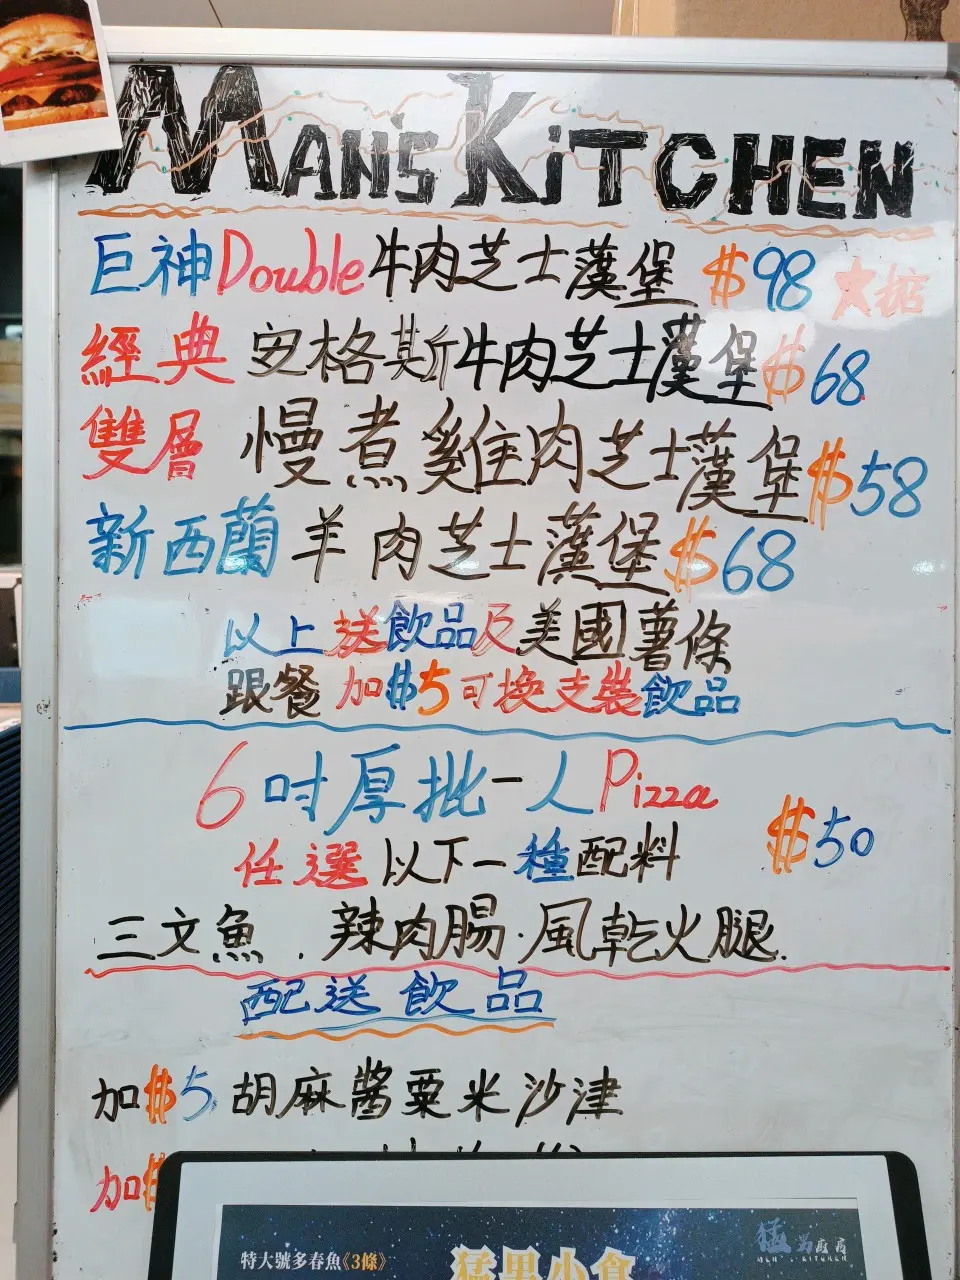 MAN'S KiTCHEN
巨神Double牛肉芝士漢堡 $98
經典 安格斯牛肉芝士漢堡 $68
雙層 慢煮雞肉芝士漢堡 $58
新西蘭羊肉芝士漢堡 $68
以上送飲品及美國薯條
跟餐加$5可換支裝飲品
6吋厚批一人Pizza
$50
任選以下一種配料
三文魚.辣肉腸.風乾火腿.
配送飲品
加$5 胡麻醬粟米沙津
加$
特大號多春魚《3條》
猛男小食
猛男廚房
MEN'S KITCHEN